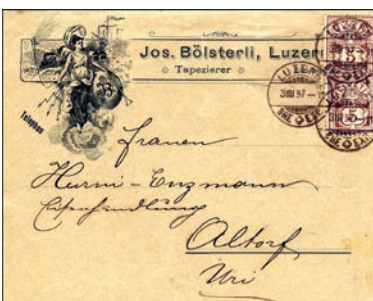 Jos. Bölsterli, Luzern
Tapezierer
Telephon
LUZERN
Frauen
Hurni-Enzmann
Eisenhandlung
Altorf
Uri
5